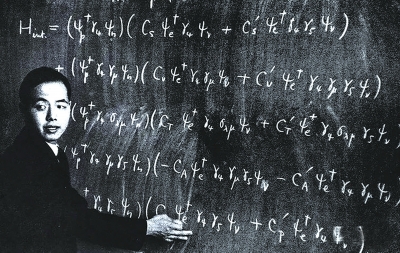 H_int. = (ψ_p^† γ_4 ψ_n) (C_S ψ_e^† γ_4 ψ_ν + C_S' ψ_e^† γ_4 γ_5 ψ_ν)
+ (ψ_p^† γ_4 γ_μ ψ_n) (C_V ψ_e^† γ_4 γ_μ ψ_ν + C_V' ψ_e^† γ_4 γ_μ γ_5 ψ_ν)
(ψ_p^† γ_4 σ_λμ ψ_n) (C_T ψ_e^† γ_4 σ_λμ ψ_ν + C_T' ψ_e^† γ_4 σ_λμ γ_5 ψ_ν
ψ_p^† γ_4 γ_μ γ_5 ψ_n) (-C_A ψ_e^† γ_4 γ_μ γ_5 ψ_ν - C_A' ψ_e^† γ_4 γ_μ ψ_ν
^† γ_4 γ_5 ψ_n) (C ψ_e^† γ_4 γ_5 ψ_ν + C_P' ψ_e^† γ_4 ψ_ν)